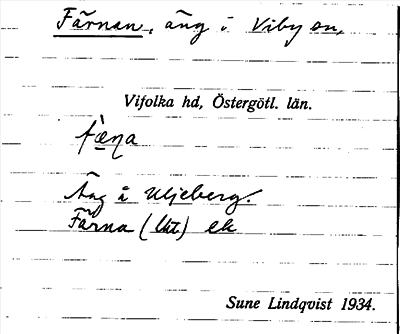 Färnan, äng i Viby sn,
Vifolka hd, Östergötl. län.
fæ̀ṇa
Äng å Uljeberg.
Färna (Ukt.) ek
Sune Lindqvist 1934.